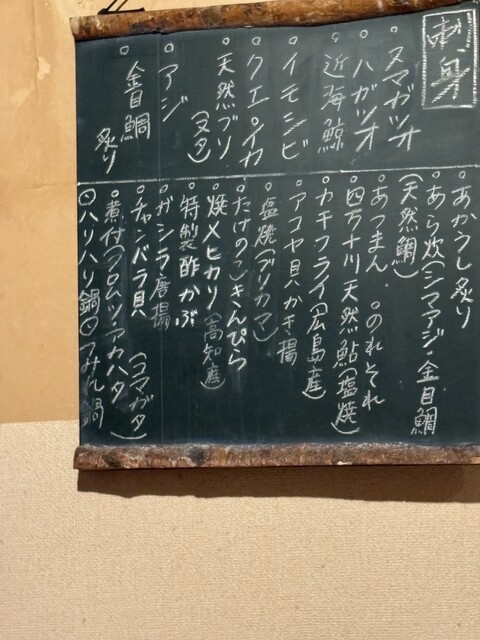 刺身
○スマガツオ
○ハガツオ
○近海鯨
○イモシビ
○クエ○イカ
○天然ブリ
(ヌタ)
○アジ
○金目鯛
炙り
○あかうし炙り
○あら炊(シマアジ・金目鯛
(天然鯛)
○あつまん ○のれそれ
○四万十川天然鮎(塩焼)
○カキフライ(広島産)
○アコヤ貝かき揚
○塩焼(ブリカマ)
○たけのこきんぴら
○焼メヒカリ(高知産)
○特製酢かぶ
○ガシラ唐揚
○チャンバラ貝
(コマガタ)
○煮付(クロムツ・アカハタ
○ハリハリ鍋○つみれ鍋